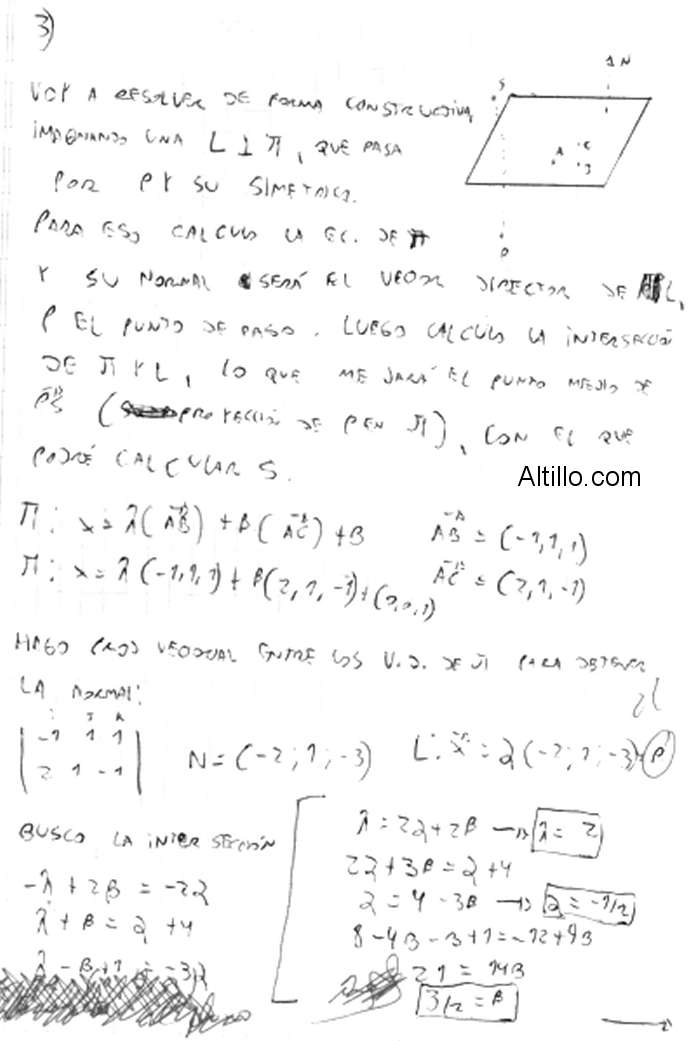 3)
VOY A RESOLVER DE FORMA CONSTRUCTIVA,
IMAGINANDO UNA L ⊥ π, QUE PASA
POR P Y SU SIMETRICO.
S
1 N
A
C
B
P
PARA ESO CALCULO LA EC. DE π
Y SU NORMAL SERÁ EL VECTOR DIRECTOR DE L,
P EL PUNTO DE PASO. LUEGO CALCULO LA INTERSECCIÓN
DE π Y L, LO QUE ME DARÁ EL PUNTO MEDIO DE
PS (PROYECCIÓN DE P EN π), CON EL QUE
PODRÉ CALCULAR S.
Altillo.com
π: x = λ(AB) + β(AC) + B AB = (-1,1,1)
π: x = λ(-1,1,1) + β(2,1,-1) + (0,0,1) AC = (2,1,-1)
HAGO PROD VECTORIAL ENTRE LOS V.D. DE π PARA OBTENER
LA NORMAL:
I J K
-1 1 1
2 1 -1
N = (-2; 1; -3) L: x = α(-2; 1; -3) + P
BUSCO LA INTERSECCIÓN
-λ + 2β = -2α
λ + β = α + 4
λ - β + 1 = -3α
λ = 2α + 2β → λ = 2
2α + 3β = α + 4
α = 4 - 3β → α = -1/2
8 - 4β - β + 1 = -12 + 9β
21 = 14β
3/2 = β